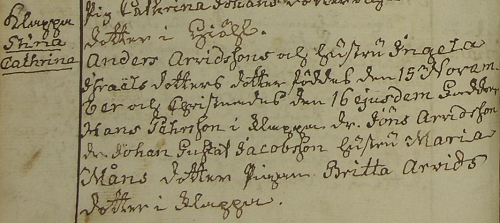 Klappa
Stina
Cathrina
Pig Cathrina Johans dotter
dotter i Gjäll.
Anders Arvidssons och hustru Ingela
Israëls dotters dotter föddes den 15 Novem-
ber och Christnades den 16 ejusdem
Hans i Klappa. dr. Jöns Arvidsson
dr. Johan Gustaf Jacobsson hustru Maria
Måns dotter Pigan Britta Arvids
dotter i Klappa.